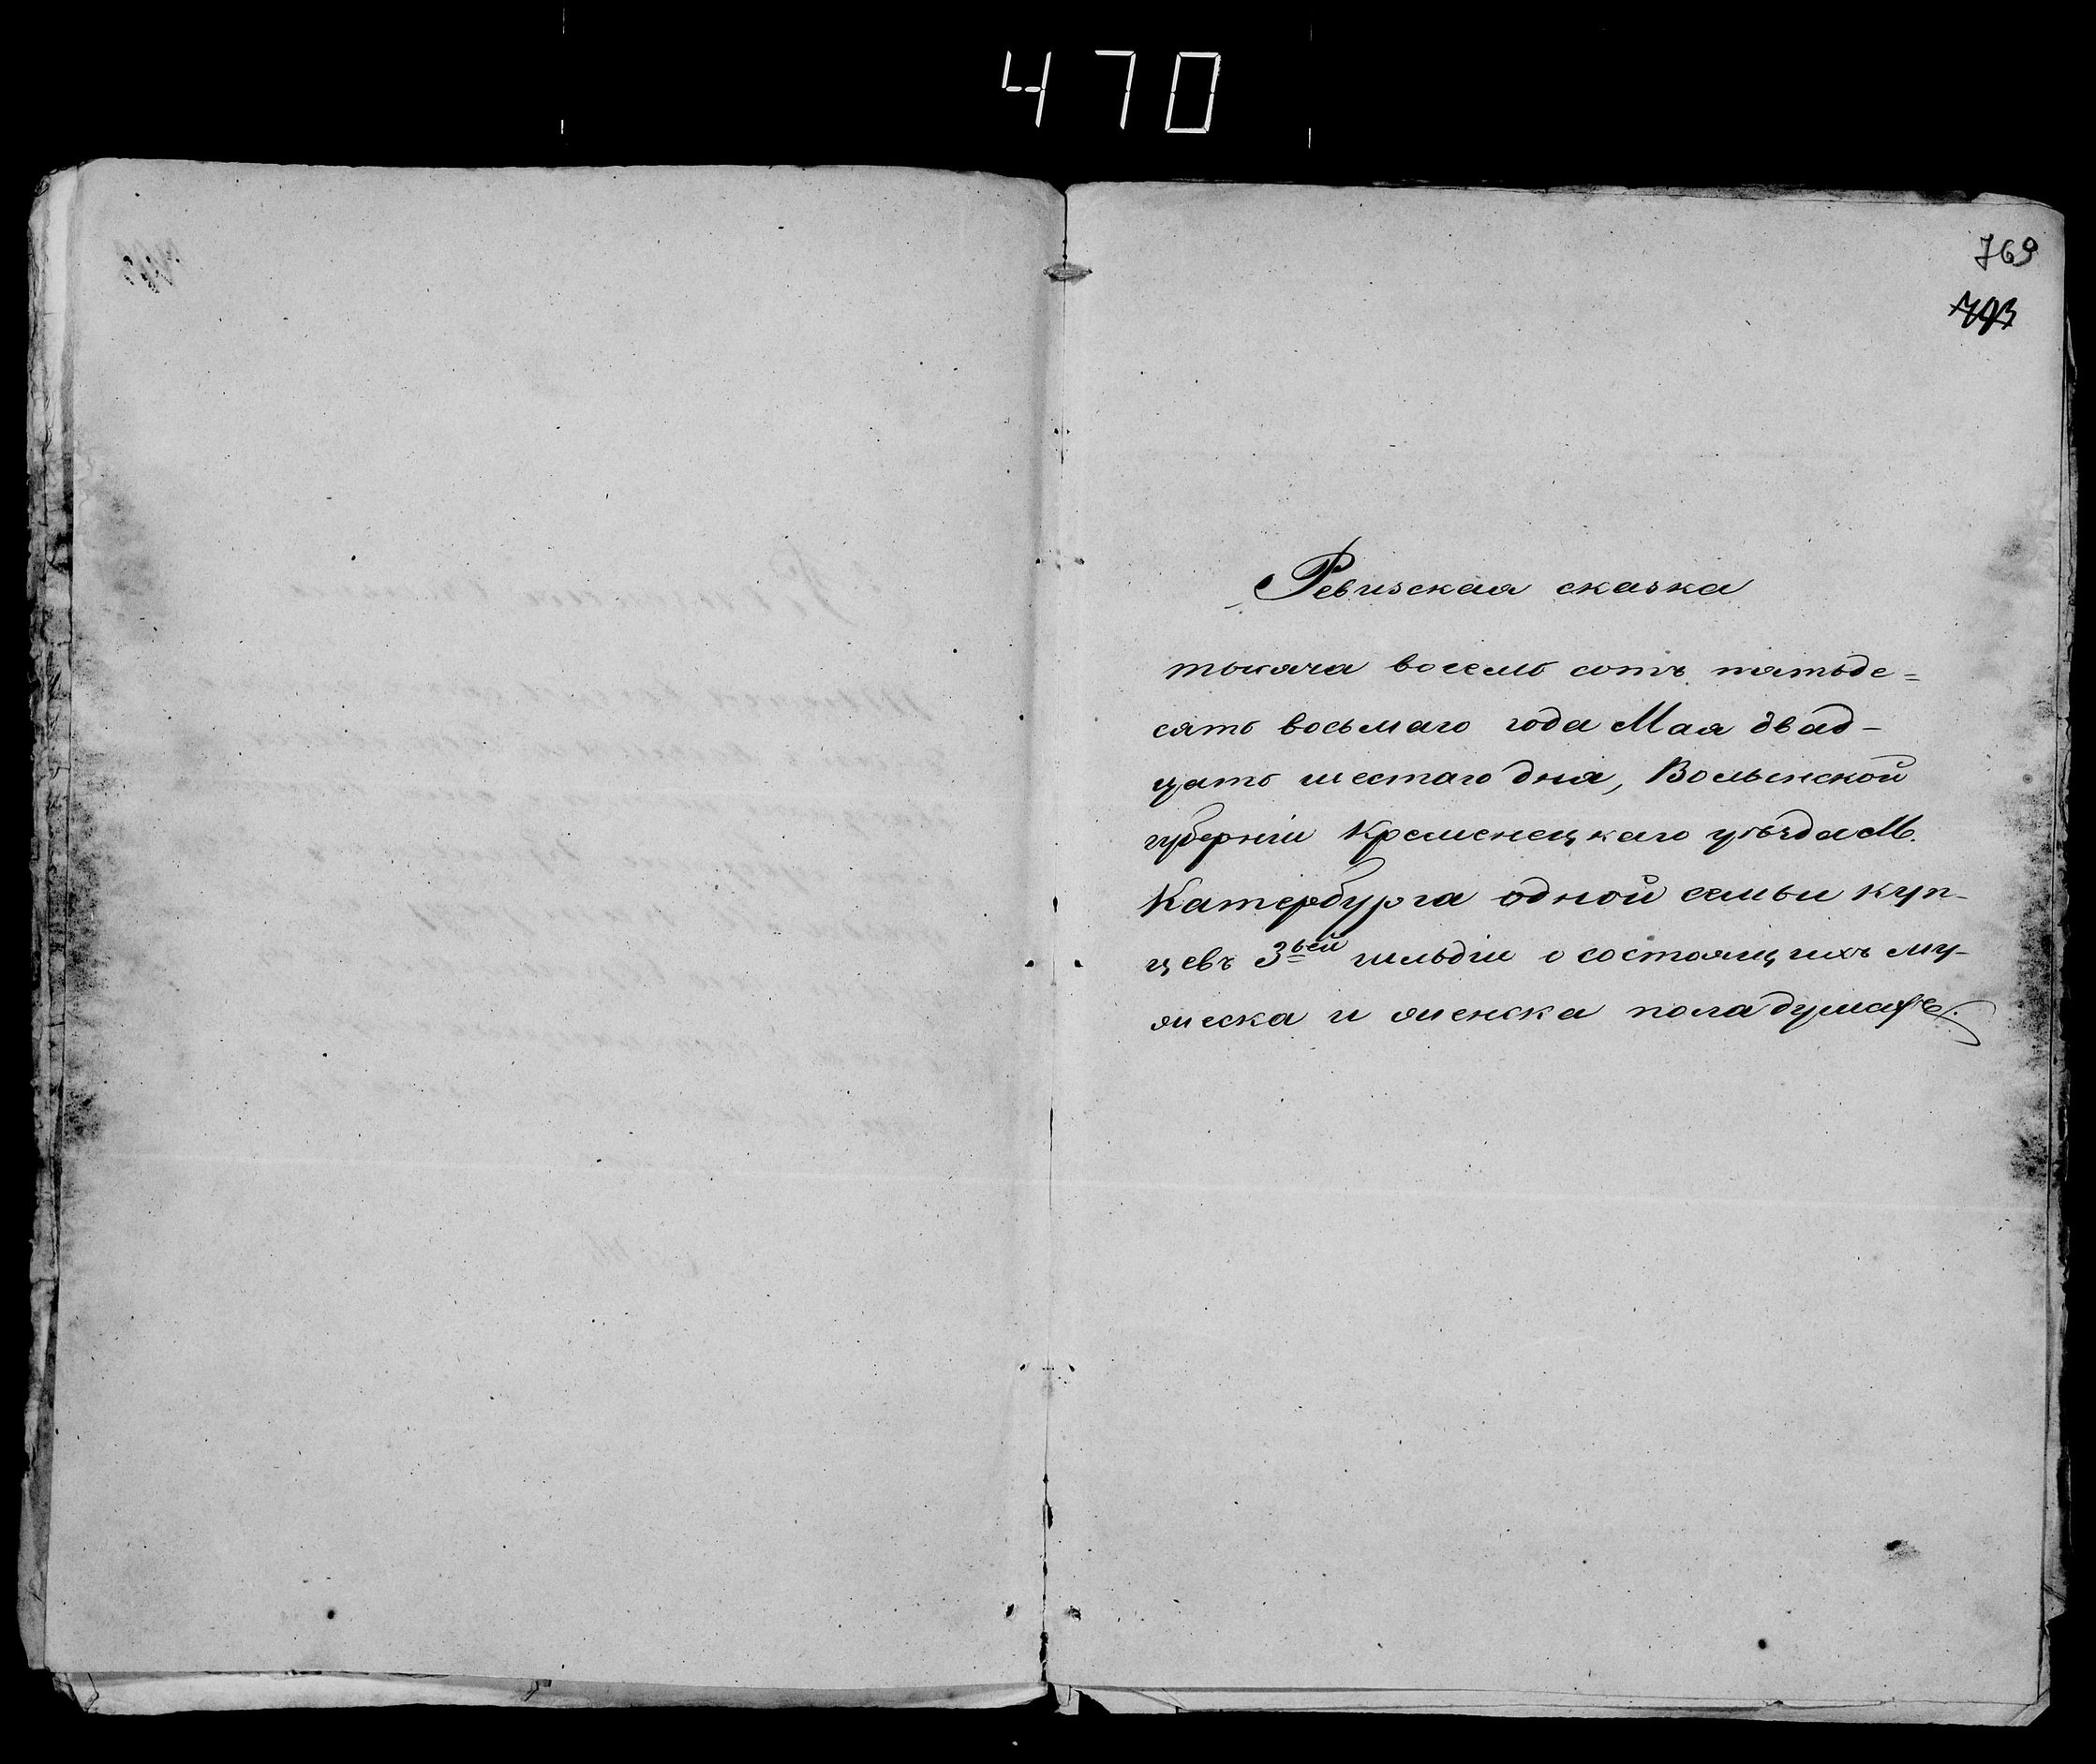 470
769
793
Ревизская сказка
тысяча восемь сотъ пятьде=
сять восьмаго года Мая двад-
цать шестаго дня, Волынской
губерніи Кременецкаго уѣзда М.
Катербурга одной семьи куп-
цевъ 3ьей гильдіи о состоящихъ му-
жеска и женска пола душахъ.